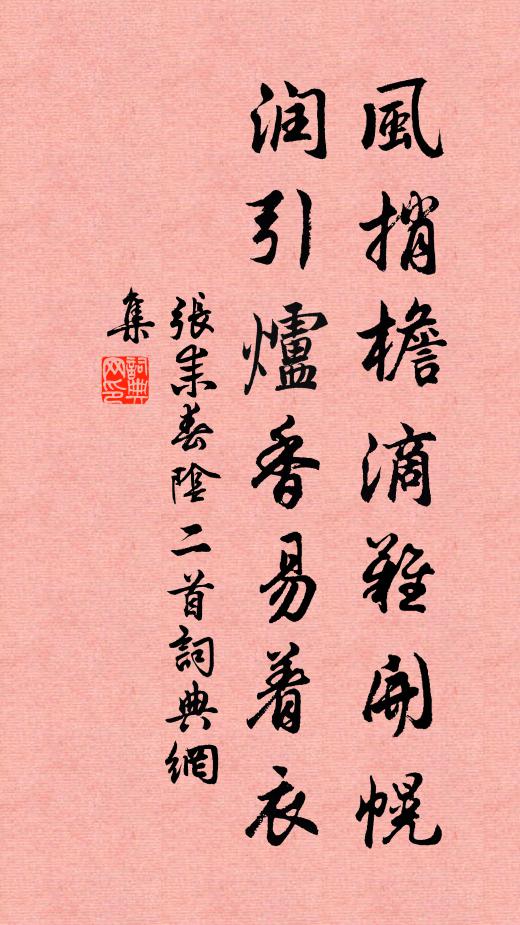 風捎檐滴難開幌
润引爐香易着衣
張耒春陰二首詞典網
集
詞典网印